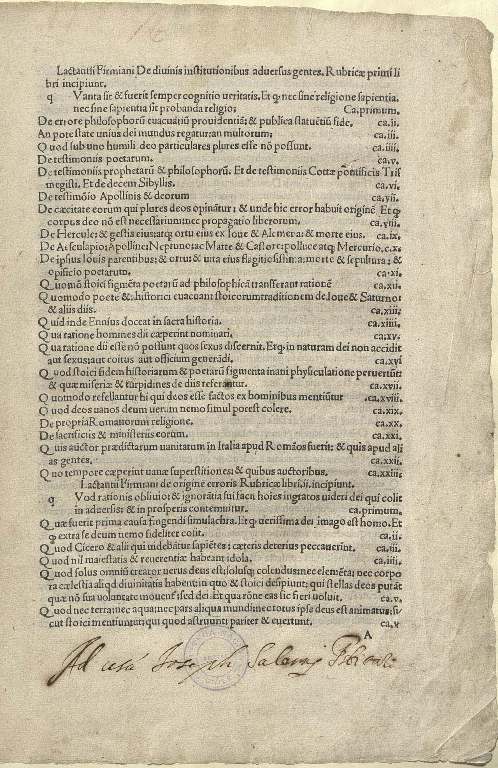 Lactantii Firmiani De diuinis institutionibus aduersus gentes. Rubricæ primi li
bri incipiunt.
q Vanta sit & fuerit semper cognitio ueritatis. Et ꝙ nec sine religione sapientia.
nec sine sapientia sit probanda religio; Ca.primum.
De errore philosophorū euacuātiū prouidentiā: & publica statuētiū fide. ca.ii.
An potestate unius dei mundus regatur: an multorum; ca.iii.
Quod sub uno humili deo particulares plures esse nō possunt. ca.iiii.
De testimoniis poetarum. ca.v.
De testimoniis prophetarū & philosophorū. Et de testimoniis Cottæ pōntificis Tris
megisti. Et de decem Sibyllis. ca.vi.
De testimōio Apollinis & deorum ca.vii.
De cæcitate eorum qui plures deos opinātur: & unde hic error habuit originē Et ꝙ
corpus deo nō est necessarium: nec propagatio liberorum. ca.viii.
De Hercule: & gestis eius: atꝗ ortu eius ex Ioue & Alcmena: & morte eius. ca.ix.
De Aesculapio: Apolline: Neptuno: ac Marte & Castore: polluce atꝗ Mercurio. c.x.
De ipsius Iouis parentibus: & ortu: & uita eius flagitiosissima: morte & sepultura: &
opificio poetarum. ca.xi.
Quomō stoici figmēta poetarū ad philosophicā transferant rationē ca.xii.
Quomodo poetę &: historici euacuant stoicorum traditionem de Ioue & Saturno:
& aliis diis. ca.xiii.
Quid inde Ennius doceat in sacra historia. ca.xiiii.
Qua ratione homines dii cœperint nominari. ca.xv.
Qua ratione dii esse nō possunt quos sexus discernit. Et ꝙ in naturam dei non accidit
aut sexus: aut coitus aut officium generādi. ca.xvi
Quod stoici fidem historiarum & poetarū figmenta inani physiculatione peruertūt:
& quæ miseriæ & turpidines de diis referantur. ca.xvii.
Quomodo refellantur hi qui deos esse factos ex hominibus mentiūtur .ca.xviii.
Quod deos uanos deum uerum nemo simul potest colere. ca.xix.
De propria Romanorum religione. ca.xx.
De sacrificiis & ministeriis eorum. ca.xxi.
Quis auctor prædictarum uanitatum in Italia apud Romāos fuerit: & quis apud ali
as gentes. ca.xxii.
Quo tempore cæperint uanæ superstitiones: & quibus auctoribus. ca.xxiii.
Lactantii Firmiani de origine erroris Rubricæ libri.ii. incipiunt.
q Vod rationis obliuio: & ignorātia sui facit hoies ingratos uideri dei quē colūt
in aduersis: & in prosperis contemnitur. ca.primum.
Quæ fuerit prima causa fingendi simulachra. Et ꝙ uerissima dei imago est homo. Et
ꝙ extra se deum nemo fideliter colit. ca.ii.
Quod Cicero & alii qui uidebātur sapiētes: cæteris deterius peccauerint. ca.iii.
Quod nil maiestatis & reuerentiæ habeant idola. ca.iiii.
Quod solus omniū creator uerus deus est: solusꝗ colendus: nec elemēta: nec corpo
ra cælestia aliqd diuinitatis habent: in quo & stoici desipiunt: qui stellas deos putāt
quæ nō sua uoluntate mouent̄ sed dei. Et qua rōne eas sic fieri uoluit. ca.v
Quod nec terra: nec aqua: nec pars aliqua mundi: nec totus ipse deus est animatus: si
cut stoici mentiuntur: qui quod astruunt: pariter & euertunt. ca.
A
Ad usū Joseph